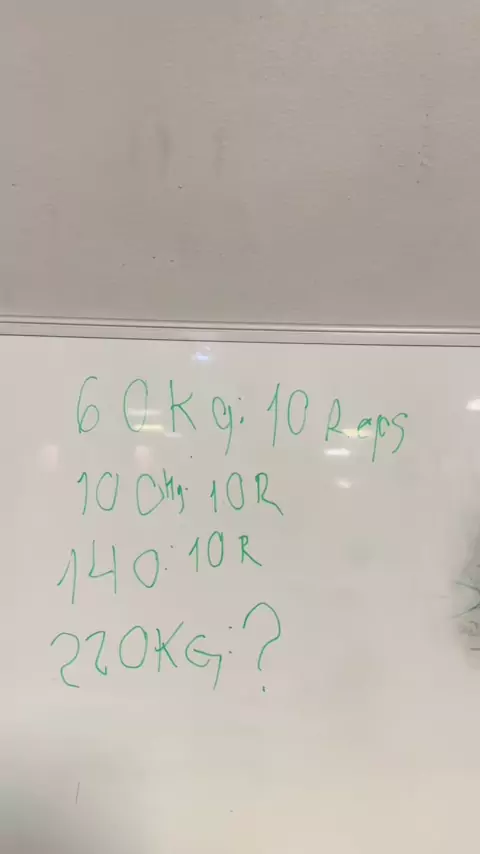 60Kg: 10 Reps
100Kg: 10R
140: 10R
220KG: ?